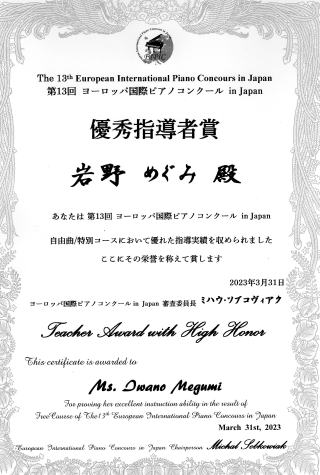 The 13th European International Piano Concours in Japan
第13回 ヨーロッパ国際ピアノコンクール in Japan
優秀指導者賞
岩野 めぐみ 殿
あなたは 第13回 ヨーロッパ国際ピアノコンクール in Japan
自由曲/特別コースにおいて優れた指導実績を収められました
ここにその栄誉を称えて賞します
2023年3月31日
ヨーロッパ国際ピアノコンクール in Japan 審査委員長 ミハウ・ソブコヴィアク
Teacher Award with High Honor
This certificate is awarded to
Ms. Iwano Megumi
For proving her excellent instruction ability in the result of
Free Course of The 13th European International Piano Concours in Japan
March 31st, 2023
European International Piano Concours in Japan Chairperson Michal Sobkowiak